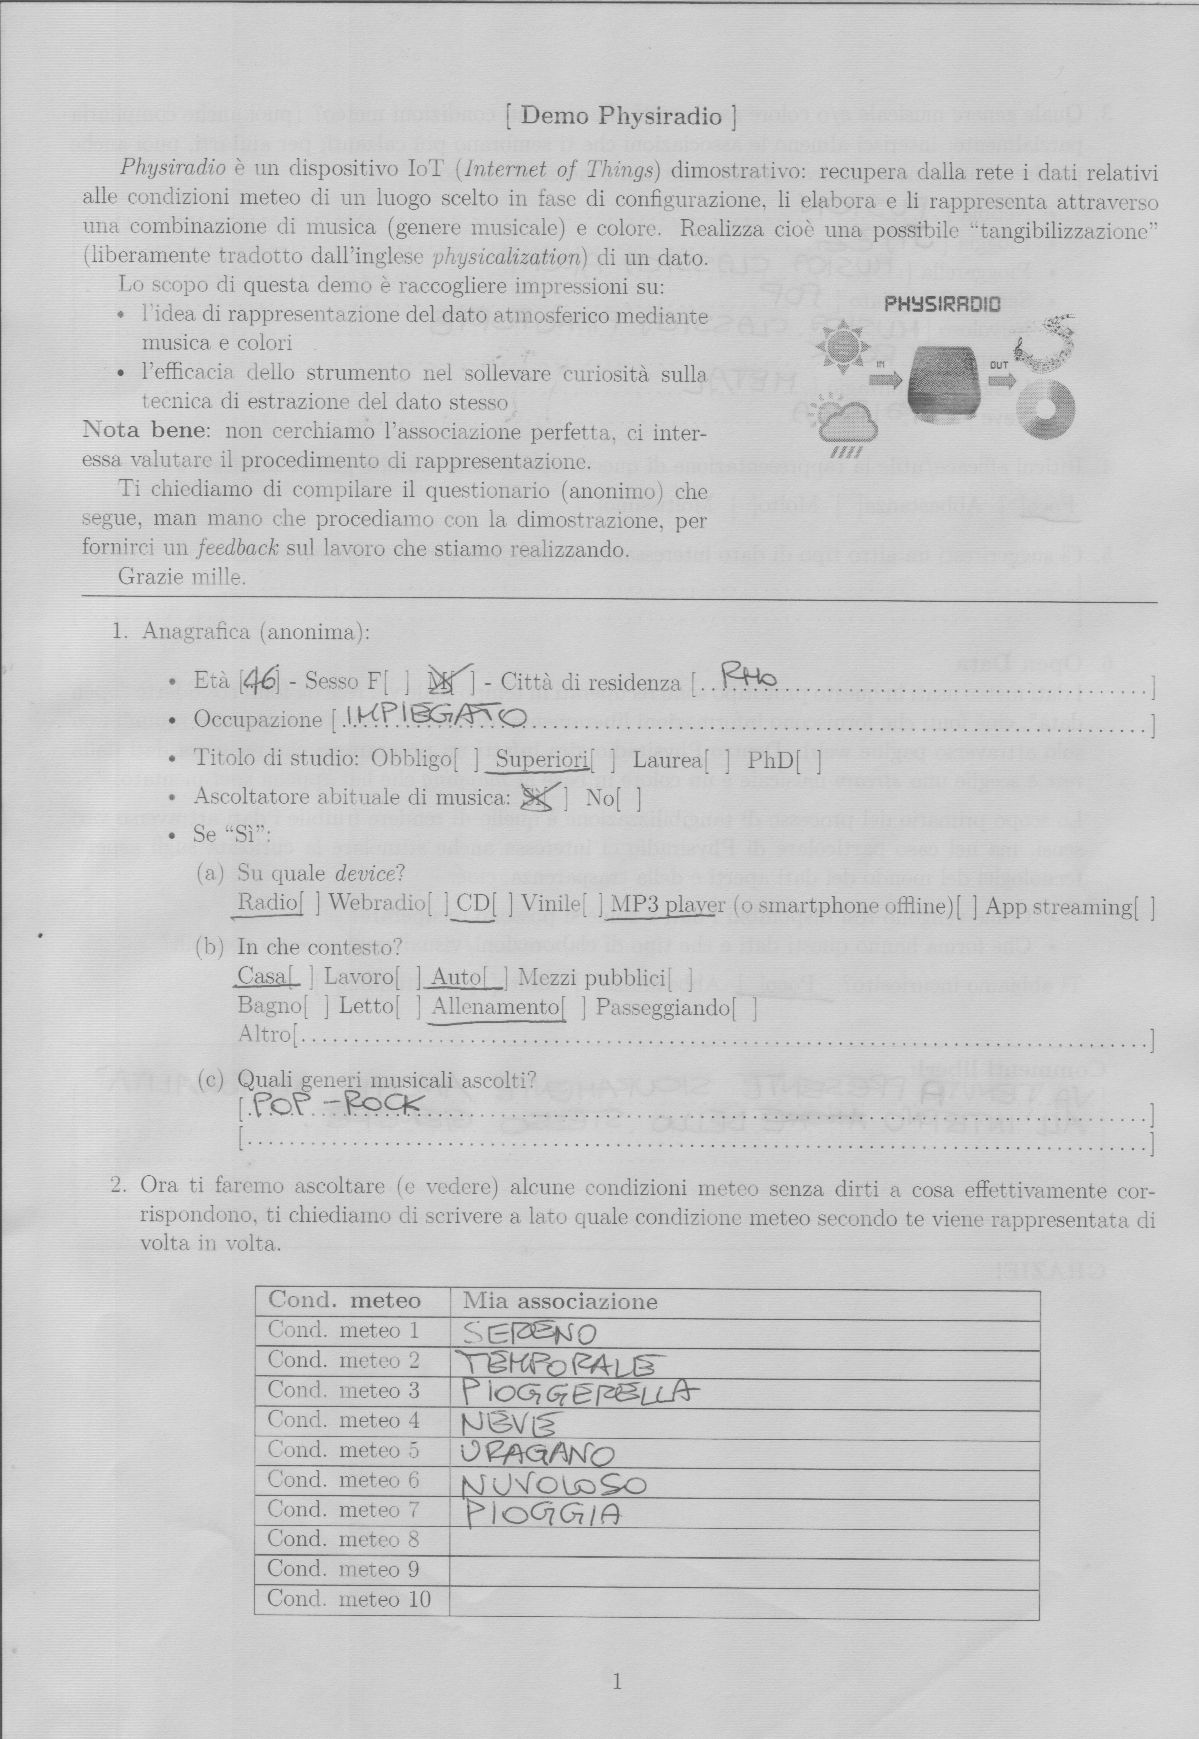 [ Demo Physiradio ]
Physiradio è un dispositivo IoT (Internet of Things) dimostrativo: recupera dalla rete i dati relativi
alle condizioni meteo di un luogo scelto in fase di configurazione, li elabora e li rappresenta attraverso
una combinazione di musica (genere musicale) e colore. Realizza cioè una possibile “tangibilizzazione”
(liberamente tradotto dall'inglese physicalization) di un dato.
Lo scopo di questa demo è raccogliere impressioni su:
• l'idea di rappresentazione del dato atmosferico mediante
musica e colori
• l'efficacia dello strumento nel sollevare curiosità sulla
tecnica di estrazione del dato stesso
Nota bene: non cerchiamo l'associazione perfetta, ci inter-
essa valutare il procedimento di rappresentazione.
Ti chiediamo di compilare il questionario (anonimo) che
segue, man mano che procediamo con la dimostrazione, per
fornirci un feedback sul lavoro che stiamo realizzando.
Grazie mille.
PHYSIRADIO
IN
OUT
1. Anagrafica (anonima):
• Età [46] - Sesso F[ ] M[ ] - Città di residenza [. . RHO . . . . ]
• Occupazione [ IMPIEGATO . . . . ]
• Titolo di studio: Obbligo[ ] Superiori[ ] Laurea[ ] PhD[ ]
• Ascoltatore abituale di musica: Sì[ ] No[ ]
• Se “Sì”:
(a) Su quale device?
Radio[ ] Webradio[ ] CD[ ] Vinile[ ] MP3 player (o smartphone offline)[ ] App streaming[ ]
(b) In che contesto?
Casa[ ] Lavoro[ ] Auto[ ] Mezzi pubblici[ ]
Bagno[ ] Letto[ ] Allenamento[ ] Passeggiando[ ]
Altro[. . . . ]
(c) Quali generi musicali ascolti?
[ POP - ROCK . . . . ]
[. . . . ]
2. Ora ti faremo ascoltare (e vedere) alcune condizioni meteo senza dirti a cosa effettivamente cor-
rispondono, ti chiediamo di scrivere a lato quale condizione meteo secondo te viene rappresentata di
volta in volta.
Cond. meteo Mia associazione
Cond. meteo 1 SERENO
Cond. meteo 2 TEMPORALE
Cond. meteo 3 PIOGGERELLA
Cond. meteo 4 NEVE
Cond. meteo 5 URAGANO
Cond. meteo 6 NUVOLOSO
Cond. meteo 7 PIOGGIA
Cond. meteo 8
Cond. meteo 9
Cond. meteo 10
1